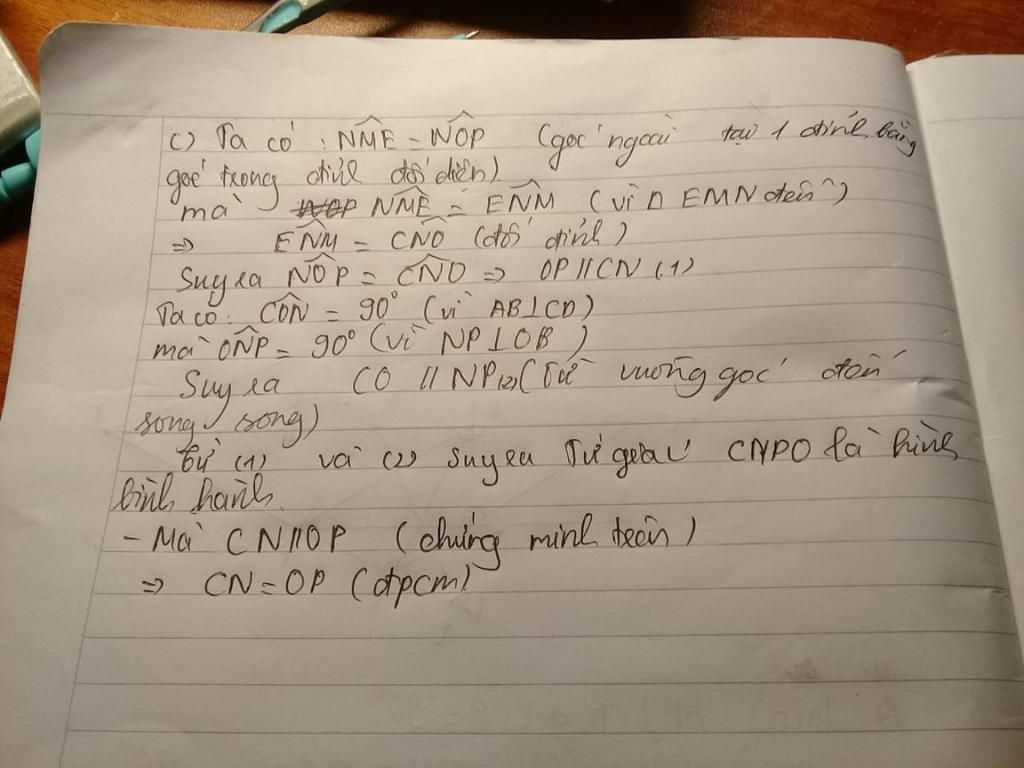 c) Ta có : NME = NOP (góc ngoài tại 1 đỉnh bằng
góc trong đỉnh đối diện)
mà NOP NME = ENM (vì Δ EMN trên)
⇒ ENM = CNO (đối đỉnh)
Suy ra NOP = CNO ⇒ OP // CN (1)
Ta có : CON = 90° (vì AB⊥CD)
mà ONP = 90° (vì NP⊥OB)
Suy ra CO // NP (2) (Từ vuông góc đến
song song)
Từ (1) và (2) suy ra Tứ giác CNPO là hình
bình hành.
- Mà CN//OP (chứng minh trên)
⇒ CN = OP (đpcm)